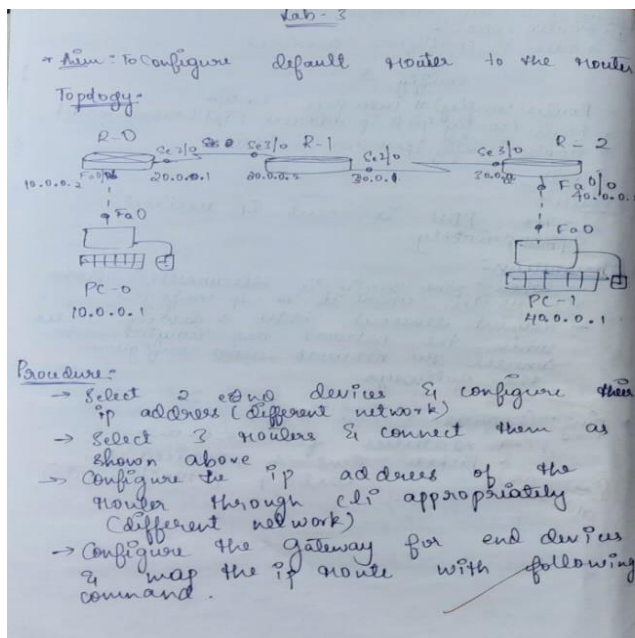 Lab - 3
* Aim: To Configure default router to the router
Topology:-
R-0 Se2/0 Se3/0 R-1 Se2/0 Se3/0 R-2
10.0.0.2 Fa0/0 20.0.0.1 20.0.0.2 30.0.0.1 Fa0/0
40.0.0.2
Fa0 Fa0
PC-0 PC-1
10.0.0.1 40.0.0.1
Procedure:-
→ Select 2 end devices & configure their
ip address (different network)
→ Select 3 routers & connect them as
shown above
→ Configure the ip address of the
router through cli appropriately
(different network)
→ Configure the gateway for end devices
& map the ip route with following
command.